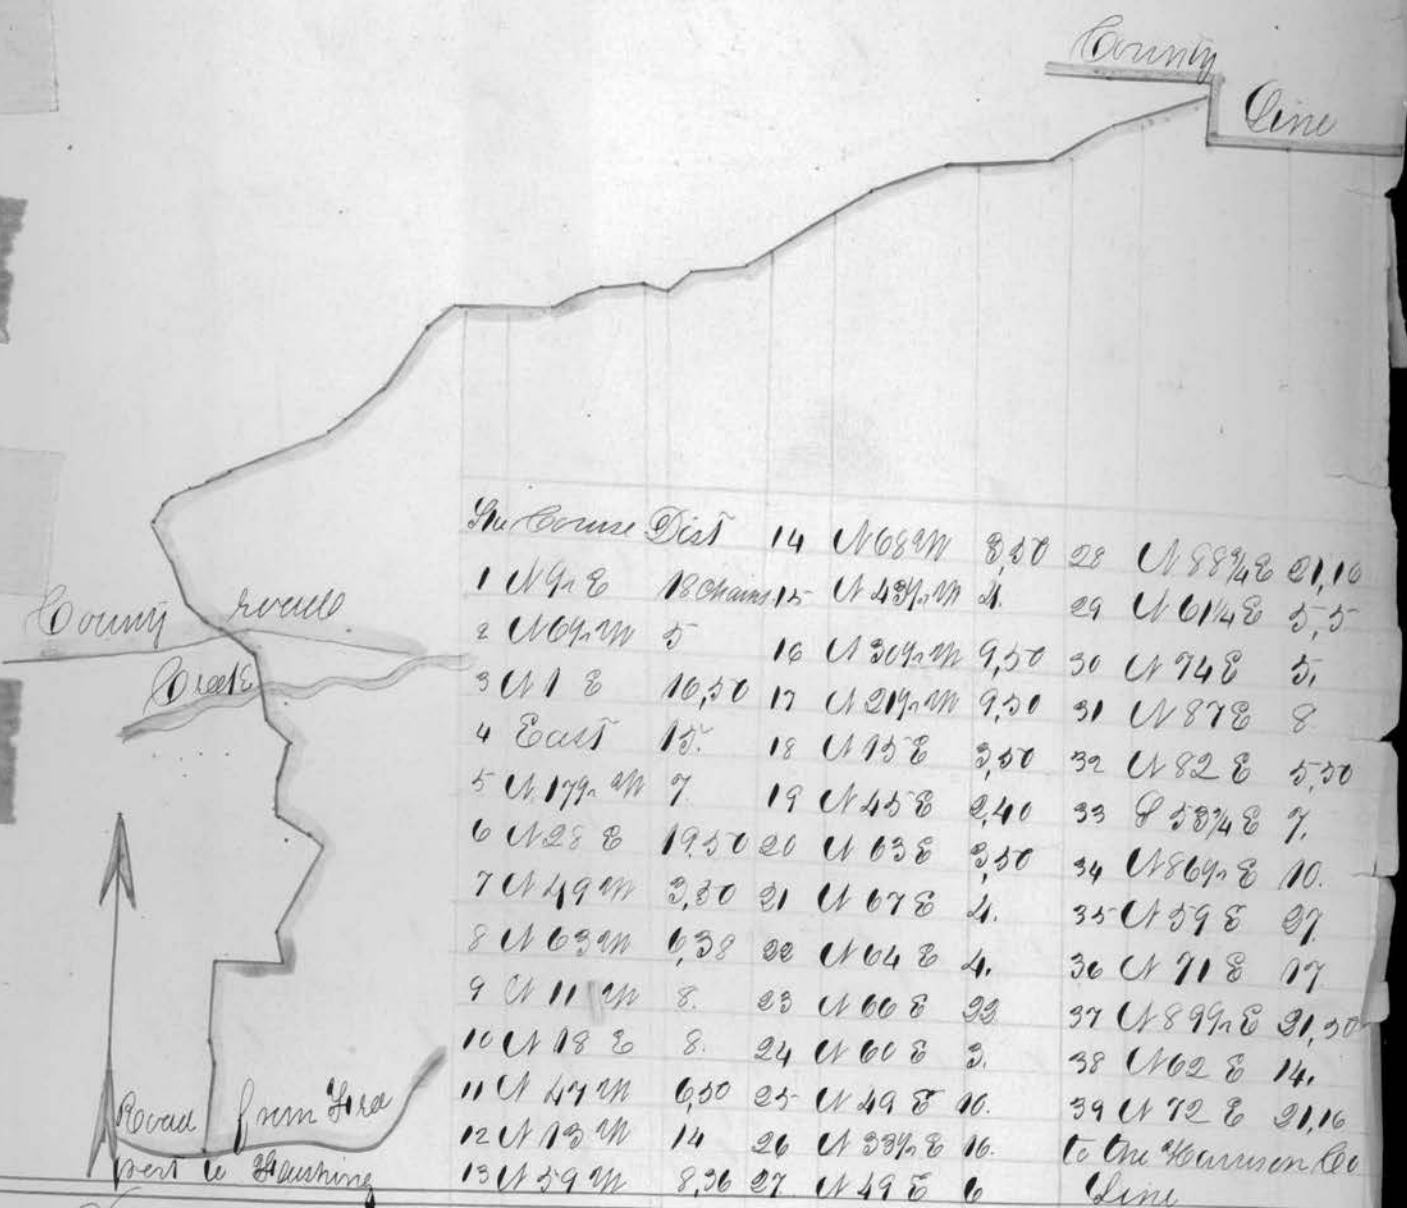 County
Line
County road
Creek
Sta Course Dist
1 N 9½ E 18 Chains
2 N 6½ W 5
3 N 1 E 16,50
4 East 15.
5 N 17½ W 7
6 N 28 E 19,50
7 N 49 W 3,50
8 N 63 W 6,38
9 N 11 W 8.
10 N 18 E 8.
11 N 47 W 6,50
12 N 13 W 14
13 N 59 W 8,36
14 N 68 W 8,50
15 N 43½ W 4.
16 N 30½ W 9,50
17 N 21½ W 9,50
18 N 15 E 3,50
19 N 45 E 2,40
20 N 63 E 3,50
21 N 67 E 4.
22 N 64 E 4.
23 N 66 E 22
24 N 60 E 3.
25 N 49 E 10.
26 N 33½ E 16.
27 N 49 E 6
28 N 88¾ E 21,10
29 N 61¼ E 5,5
30 N 74 E 5,
31 N 87 E 8
32 N 82 E 5,50
33 S 53¾ E 7.
34 N 86½ E 10.
35 N 59 E 27.
36 N 71 E 17
37 N 89½ E 21,50
38 N 62 E 14.
39 N 72 E 21,16
to the Harrison Co
Line
Road from Free
port to Flushing